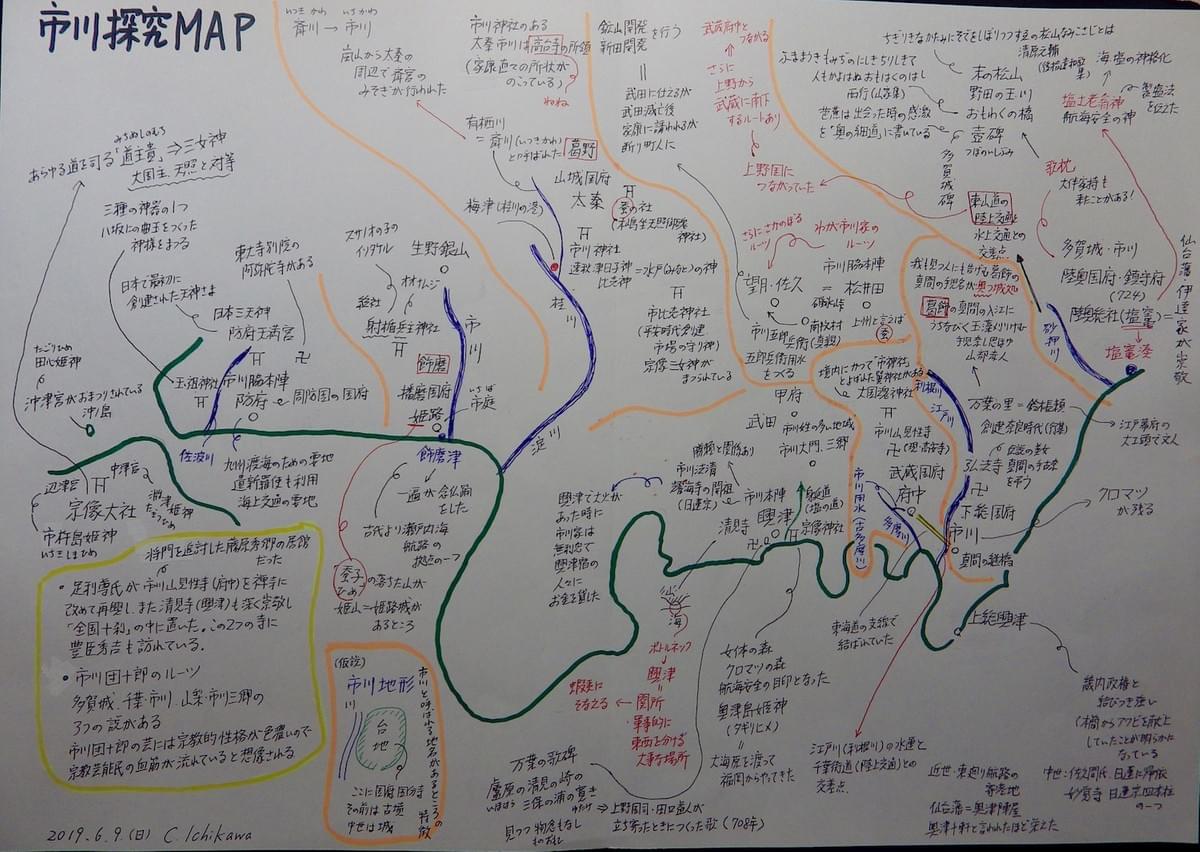 市川探究MAP
いつきかわ いちかわ
斉川 → 市川
嵐山から太秦の
周辺で斉宮の
みそぎが行われた
市川神社のある
太秦市川は高台寺の所領
(家康直々の所状が
のこっている)
ねね
鉱山開発
新田開発
を行う
武田に仕えるが
武田滅亡後
家康に誘われるが
断り町人に
武蔵府中と
つながる
さらに
上野から
武蔵に南下
するルートあり
上野国に
つながっていた
ちぎりきなかたみにそでをしぼりつつ末の松山なみこさじとは
清原元輔
ふままうきもみぢのにしきちりしきて
人もかよはぬおもはくのはし
西行(山家集)
芭蕉は出会った時の感激
を「奥の細道」に書いている
末の松山
野田の玉川
おもわくの橋
壺碑
つぼのいしぶみ
多賀城碑
海塩の神格化
塩土老翁神
航海安全の神
製塩法
を伝えた
歌枕
大伴家持も
来たことがある!
東山道の
陸上交通と
水上交通との
交差点
多賀城・市川
陸奥国府・鎮守府
(724)
陸奥総社(塩竈)=
塩竈湊
仙台藩伊達家が崇敬
砂押川
みちぬしのむち
あらゆる道を司る「道主貴」⇒三女神
大国主、天照と対等
三種の神器の1つ
八坂にの曲玉をつくった
神様をまつる
日本で最初に
創建された天神さま
東大寺別院の
阿弥陀寺がある
日本三天神
防府天満宮
玉祖神社
市川脇本陣
防府
周防国の国府
佐波川
九州渡海のための要地
遣新羅使も利用
海上交通の要地
たごりひめ
田心姫神
沖津宮がおまつりされている
沖ノ島
辺津宮
中津宮
宗像大社
湍津姫神
たぎつひめ
市杵島姫神
いちきしまひめ
スサノオの子の
イソタケル
生野銀山
オオナムジ
総社
射楯兵主神社
飾磨
播磨国府
姫路
市川
いちば
市庭
飾磨津
一遍が念仏踊
をした
古代より瀬戸内海
航路の
拠点の一つ
蚕子
ひめこ
の落ちた山が
姫山=姫路城が
あるところ
有栖川
=斉川(いつきかわ)
と呼ばれた
葛野
山城国府
太秦
梅津(桂川の港)
蚕の社
(木島坐天照御魂
神社)
市川神社
速秋津日子神
比売神
=水戸(みなと)の神
市比売神社
(平安時代創建
市場の守り神)
宗像三女神が
まつられている
桂川
淀川
さらにさかのぼる
ルーツ
わが市川家の
ルーツ
望月・佐久
市川脇本陣
=松井田
碓氷峠
南牧村
上州と言えば
蚕
市川五郎兵衛(真親)
五郎兵衛用水
をつくる
甲府
武田
市川姓の多い地域
市川大門、三郷
勝頼と関係あり
市川清
境内にかつて「市神社」
とよばれた箕神社がある
大国魂神社
市川山見性寺
(現・高安寺)
武蔵国府
府中
市川用水(古多摩川)
多摩川
利根川
江戸川
我も見つ人にも告げむ葛飾の
真間の手児名が奥つ城処
葛飾の真間の入江に
うちなびく玉藻刈りけむ
手児奈し思ほゆ
山部赤人
万葉の里=鈴木鎮
創建奈良時代(行基)
弘法寺
下総国府
市川
真間の継橋
クロマツ
が残る
江戸幕府の
大工頭で文人
興津で大火が
あった時に
市川家は
無利息で
興津宿の
人々に
お金を貸した
市川本陣
興津
清見寺
身延道
(塩の道)
宗像神社
山
海
ボトルネック
興津
=
関所
・軍事的に
東西を分ける
大事な場所
蝦夷に
そなえる
女体の森
クロマツの森
航海安全の目印となった
奥津島姫神
(タギリヒメ)
大海原を渡って
福岡からやってきた
東海道の支線で
結ばれていた
江戸川(利根川)の水運と
千葉街道(陸上交通)との
交差点
上総興津
畿内政権と
結びつき強い
(木簡からアワビを献上
していたことが明らかに
なっている
近世・東廻り航路の
寄港地
仙台藩=奥津陣屋
興津千軒と言われたほど栄えた
中世・佐久間氏、日蓮に帰依
妙覚寺 日蓮宗四本柱
の一つ
将門を追討した藤原秀郷の居館
だった
・足利尊氏が市川山見性寺(府中)を禅寺に
改めて再興し、また清見寺(興津)も深く崇敬し
「全国十刹」の中に置いた。この2つの寺に
豊臣秀吉も訪れている。
・市川団十郎のルーツ
多賀城、千葉・市川、山梨・市川三郷の
3つの説がある
市川団十郎の芸には宗教的性格が色濃いので
宗教芸能民の血筋が流れていると想像される
(仮説)
市川地形
川
台地
市川と呼ばれる地名があるところの特徴
ここに国府国分寺
その前は古墳
中世は城
万葉の歌碑
廬原の清見の崎の
いほはら
三保の浦の寛き
ゆたけき
見つつ物念もなし
ものおもひ
⇒上野国司・田口益人が
立ち寄ったときにつくった歌(708年)
2019.6.9(日) C.Ichikawa